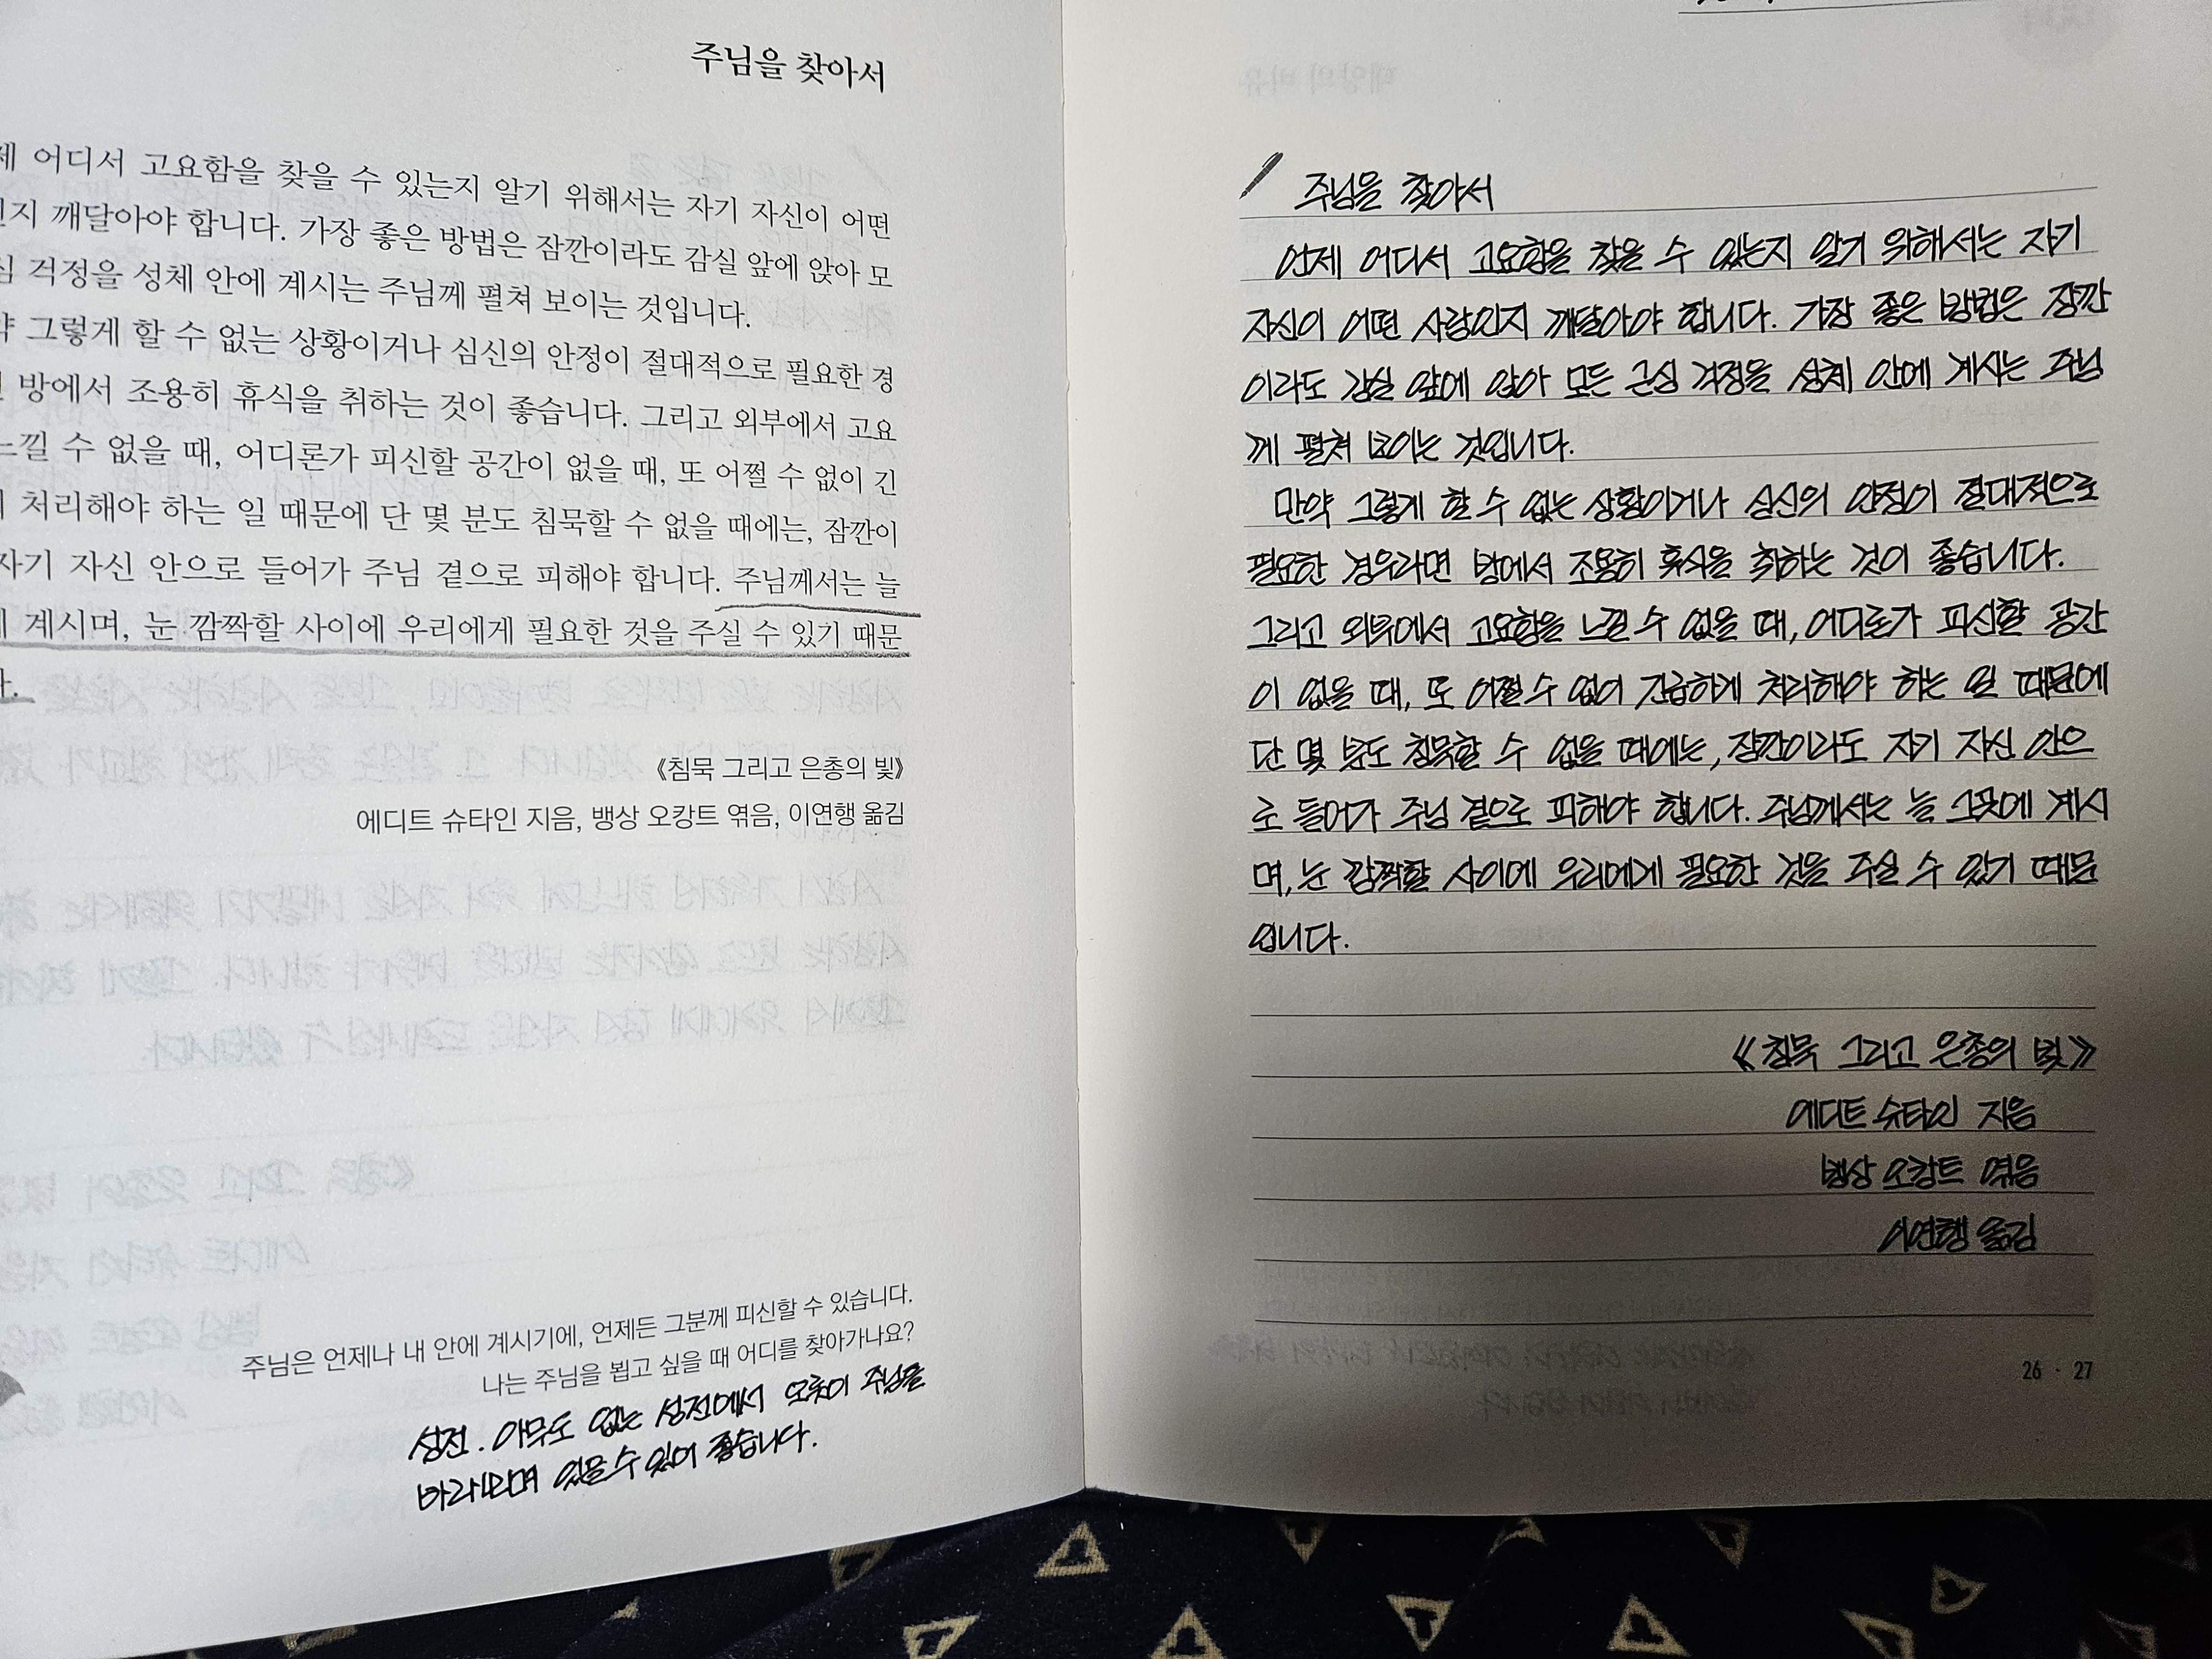 주님을 찾아서
제 어디서 고요함을 찾을 수 있는지 알기 위해서는 자기 자신이 어떤
인지 깨달아야 합니다. 가장 좋은 방법은 잠깐이라도 감실 앞에 앉아 모
심 걱정을 성체 안에 계시는 주님께 펼쳐 보이는 것입니다.
약 그렇게 할 수 없는 상황이거나 심신의 안정이 절대적으로 필요한 경
방에서 조용히 휴식을 취하는 것이 좋습니다. 그리고 외부에서 고요
느낄 수 없을 때, 어디론가 피신할 공간이 없을 때, 또 어쩔 수 없이 긴
처리해야 하는 일 때문에 단 몇 분도 침묵할 수 없을 때에는, 잠깐이
자기 자신 안으로 들어가 주님 곁으로 피해야 합니다. 주님께서는 늘
계시며, 눈 깜짝할 사이에 우리에게 필요한 것을 주실 수 있기 때문
다.
《침묵 그리고 은총의 빛》
에디트 슈타인 지음, 뱅상 오캉트 엮음, 이연행 옮김
주님은 언제나 내 안에 계시기에, 언제든 그분께 피신할 수 있습니다.
나는 주님을 뵙고 싶을 때 어디를 찾아가나요?
성전. 아무도 없는 성전에서 오롯이 주님을
바라보며 있을 수 있어 좋습니다.
주님을 찾아서
언제 어디서 고요함을 찾을 수 있는지 알기 위해서는 자기
자신이 어떤 사람인지 깨달아야 합니다. 가장 좋은 방법은 잠깐
이라도 감실 앞에 앉아 모든 근심 걱정을 성체 안에 계시는 주님
께 펼쳐 보이는 것입니다.
만약 그렇게 할 수 없는 상황이거나 심신의 안정이 절대적으로
필요한 경우라면 방에서 조용히 휴식을 취하는 것이 좋습니다.
그리고 외부에서 고요함을 느낄 수 없을 때, 어디론가 피신할 공간
이 없을 때, 또 어쩔 수 없이 긴급하게 처리해야 하는 일 때문에
단 몇 분도 침묵할 수 없을 때에는, 잠깐이라도 자기 자신 안으
로 들어가 주님 곁으로 피해야 합니다. 주님께서는 늘 그곳에 계시
며, 눈 깜짝할 사이에 우리에게 필요한 것을 주실 수 있기 때문
입니다.
《침묵 그리고 은총의 빛》
에디트 슈타인 지음
뱅상 오캉트 엮음
이연행 옮김
26 · 27